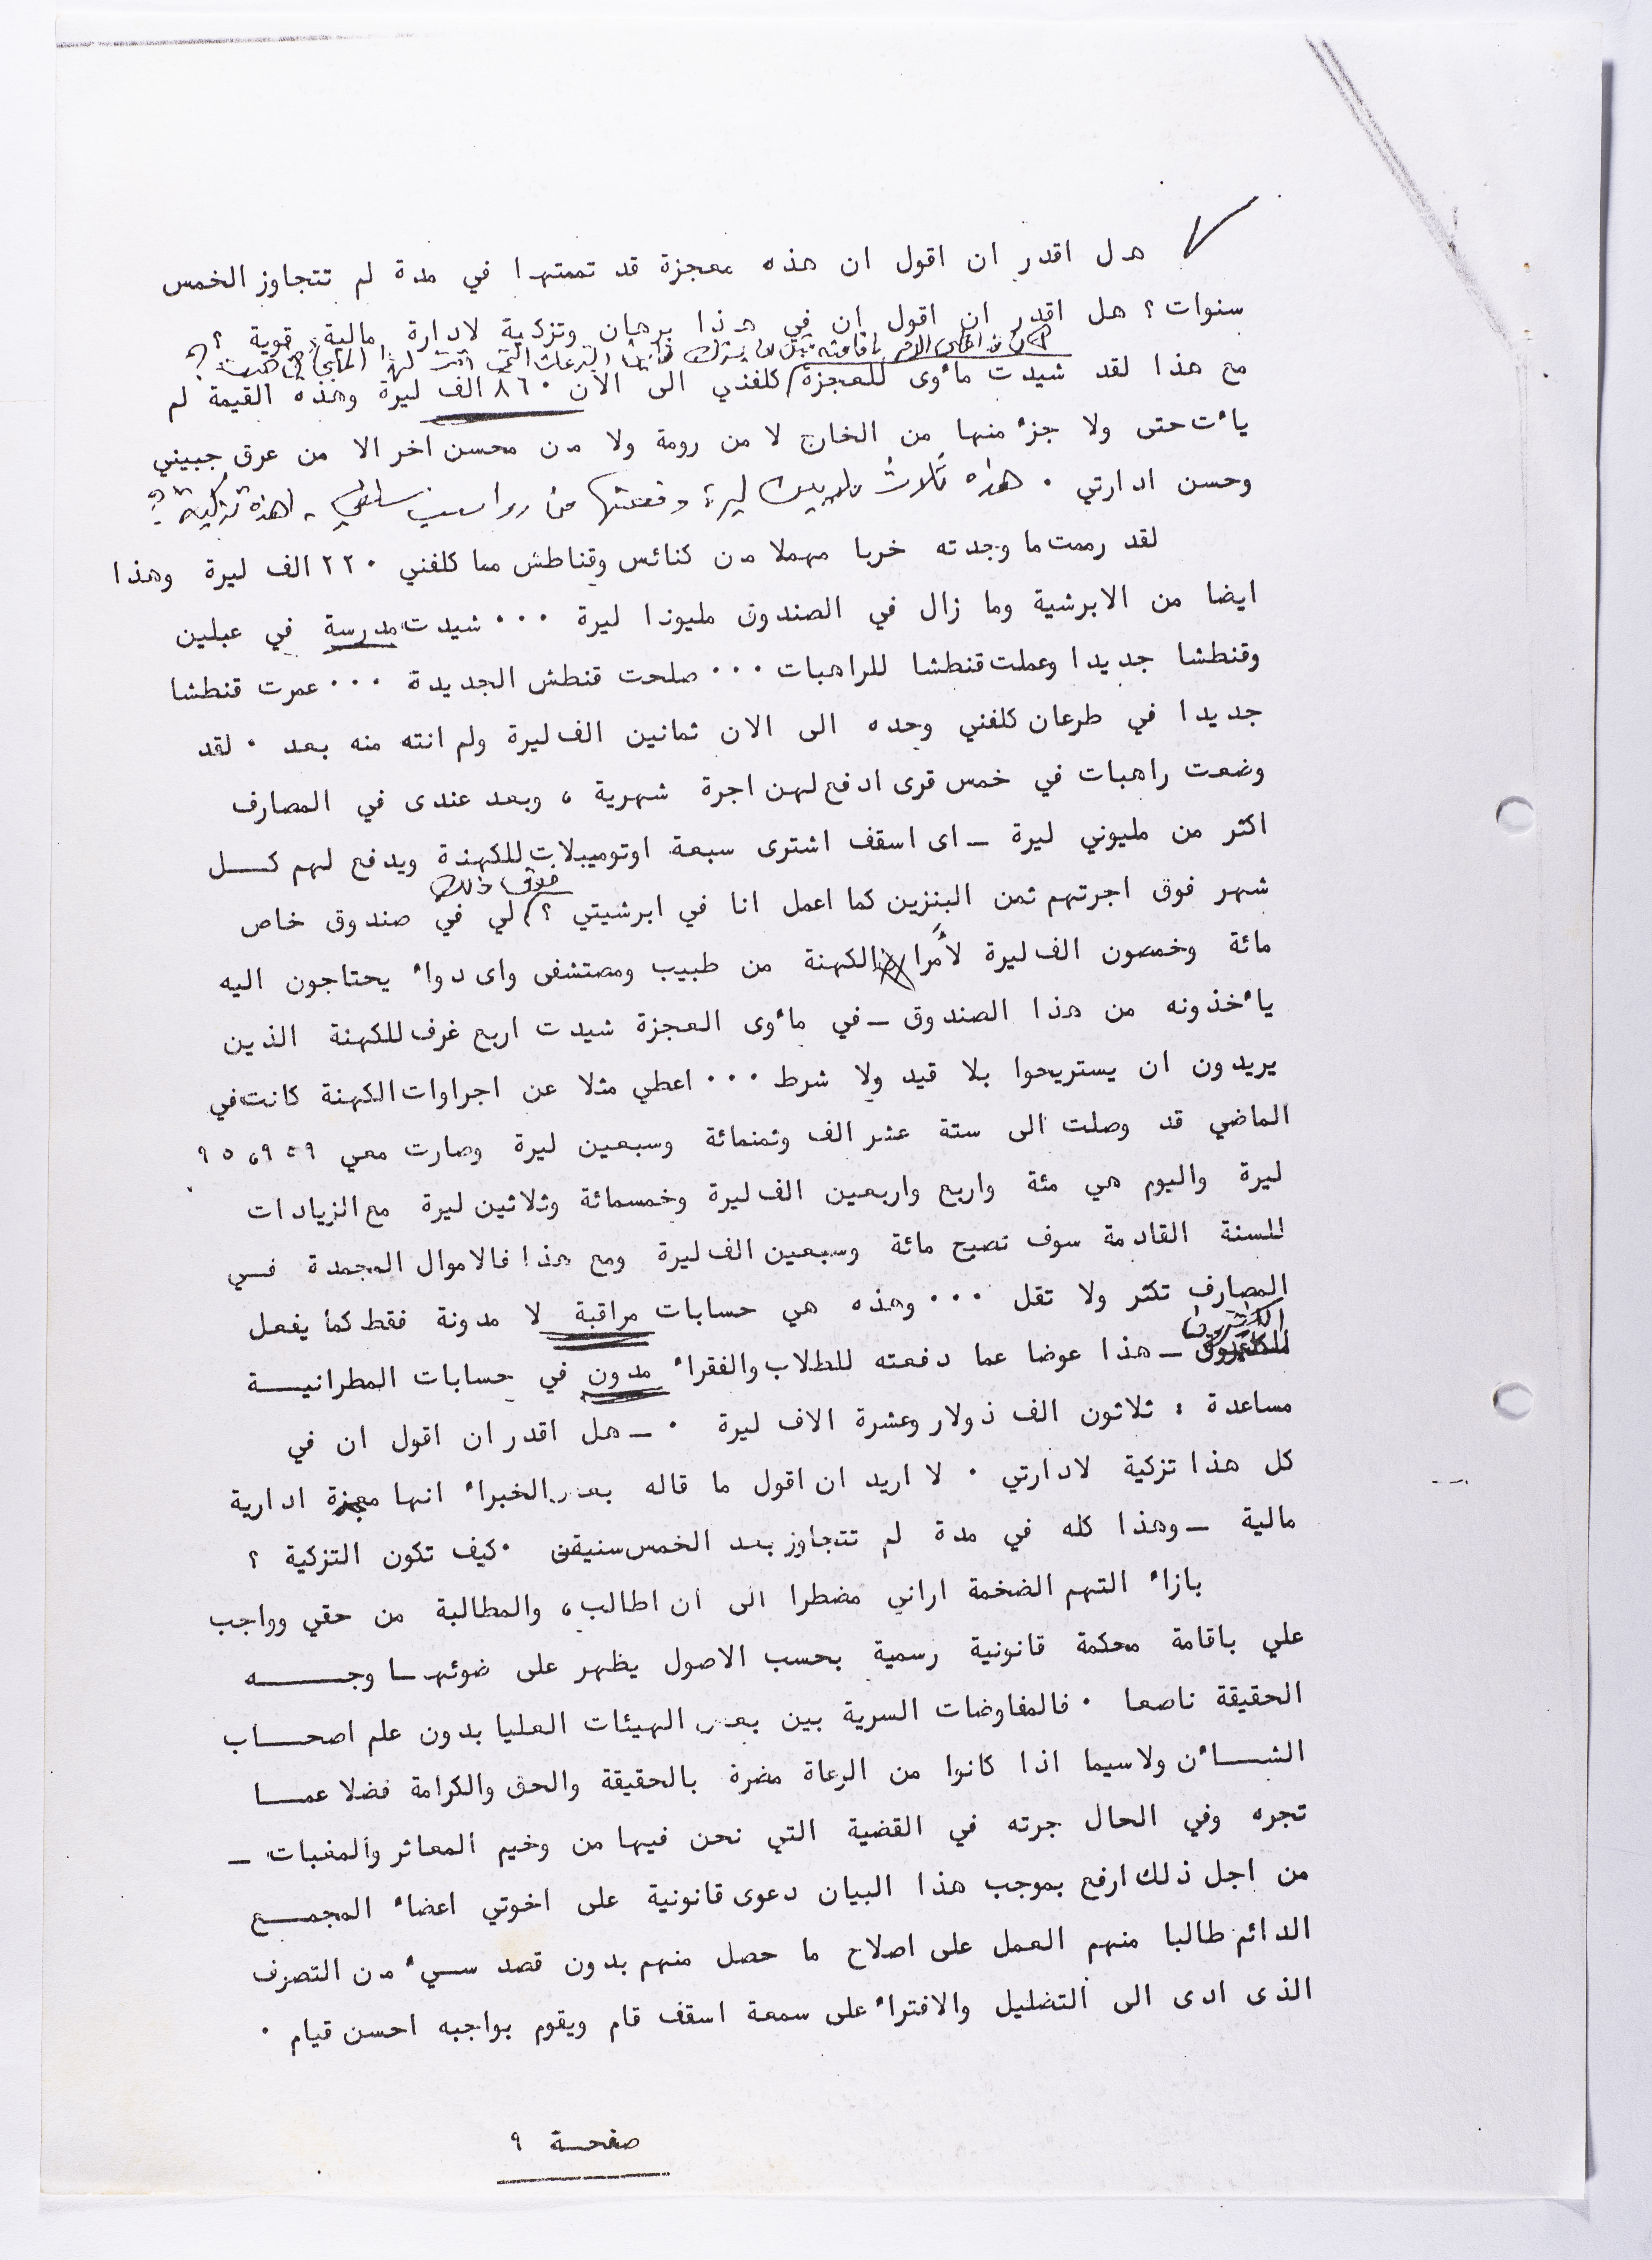 هل اقدر ان اقول ان هذه معجزة قد تممتها في مدة لم تتجاوز الخمس
سنوات ؟ هل اقدر ان اقول ان في هذا برهان وتزكية لادارة مالية قوية ؟
مع هذا لقد شيدت مأوى للعجزة كلفني الى الان ٨٦٠ الف ليرة وهذه القيمة لم
يأت حتى ولا جزء منها من الخارج لا من رومة ولا من محسن اخر الا من عرق جبيني
وحسن ادارتي . هذه ثلاث ملايين ليرة دفعتها من ، اهذه تزكية ؟
لقد رممت ما وجدته خربا مهملا من كنائس وقناطش مما كلفني ٢٢٠ الف ليرة وهذا
ايضا من الابرشية وما زال في الصندوق مليونا ليرة ... شيدت مدرسة في عبلين
وقنطشا جديدا وعملت قنطشا للراهبات ... صلحت قنطش الجديدة ... عمرت قنطشا
جديدا في طرعان كلفني وحده الى الان ثمانين الف ليرة ولم انته منه بعد . لقد
وضعت راهبات في خمس قرى ادفع لهن اجرة شهرية ، وبعد عندى في المصارف
اكثر من مليوني ليرة ــ اى اسقف اشترى سبعة اوتوميبلات للكهنة ويدفع لهم كــل
شهر فوق اجرتهم ثمن البنزين كما اعمل انا في ابرشيتي ؟ فوق ذلك لي في صندوق خاص
مائة وخمسون الف ليرة لأمراض الكهنة من طبيب ومستشفى واى دواء يحتاجون اليه
يأخذونه من هذا الصندوق ــ في مأوى العجزة شيدت اربع غرف للكهنة الذين
يريدون ان يستريحوا بلا قيد ولا شرط ... اعطي مثلا عن اجراوات الكهنة كانت في
الماضي قد وصلت الى ستة عشر الف وثمنمائة وسبعين ليرة وصارت معي ٩٥،٩٥٩
ليرة واليوم هي مئة واربع واربعين الف ليرة وخمسمائة وثلاثين ليرة مع الزيادات
للسنة القادمة سوف تصبح مائة وسبعين الف ليرة ومع هذا فالاموال المجمدة فــي
المصارف تكثر ولا تقل ... وهذه هي حسابات مراقبة لا مدونة فقط كما يفعل
الكثيرون ــ هذا عوضا عما دفعته للطلاب والفقراء مدون في حسابات المطرانيــة
مساعدة : ثلاثون الف ذولار وعشرة الاف ليرة . ــ هل اقدر ان اقول ان في
كل هذا تزكية لادارتي . لا اريد ان اقول ما قاله بعض الخبراء انها معجزة ادارية
مالية ــ وهذا كله في مدة لم تتجاوز بعد الخمس سنين . كيف تكون التزكية ؟
بازاء التهم الضخمة اراني مضطرا الى ان اطالب ، والمطالبة من حقي وواجب
علي باقامة محكمة قانونية رسمية بحسب الاصول يظهر على ضوئهــا وجــــه
الحقيقة ناصعا . فالمفاوضات السرية بين بعض الهيئات العليا بدون علم اصحــاب
الشــأن ولاسيما اذا كانوا من الرعاة مضرة بالحقيقة والحق والكرامة فضلا عمــا
تجره وفي الحال جرته في القضية التي نحن فيها من وخيم المعاثر والمغبات ــ
من اجل ذلك ارفع بموجب هذا البيان دعوى قانونية على اخوتي اعضاء المجمــع
الدائم طالبا منهم العمل على اصلاح ما حصل منهم بدون قصد سيء من التصرف
الذى ادى الى التضليل والافتراء على سمعة اسقف قام ويقوم بواجبه احسن قيام .
صفحــة ٩